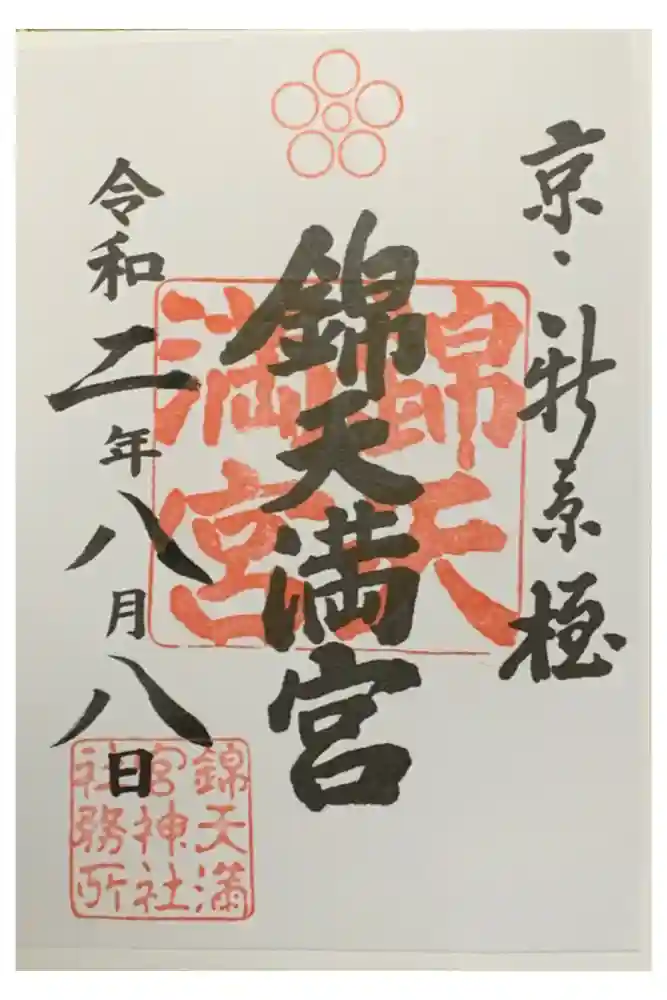 京・新京極
錦天満宮
錦天
満宮
令和二年八月八日
錦天満
宮神社
社務所